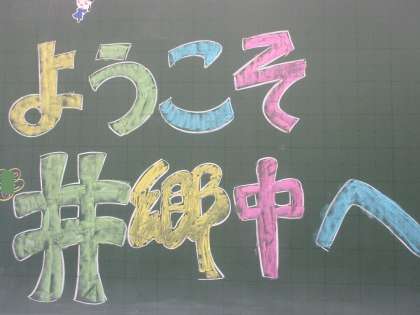 ようこそ
井郷中へ